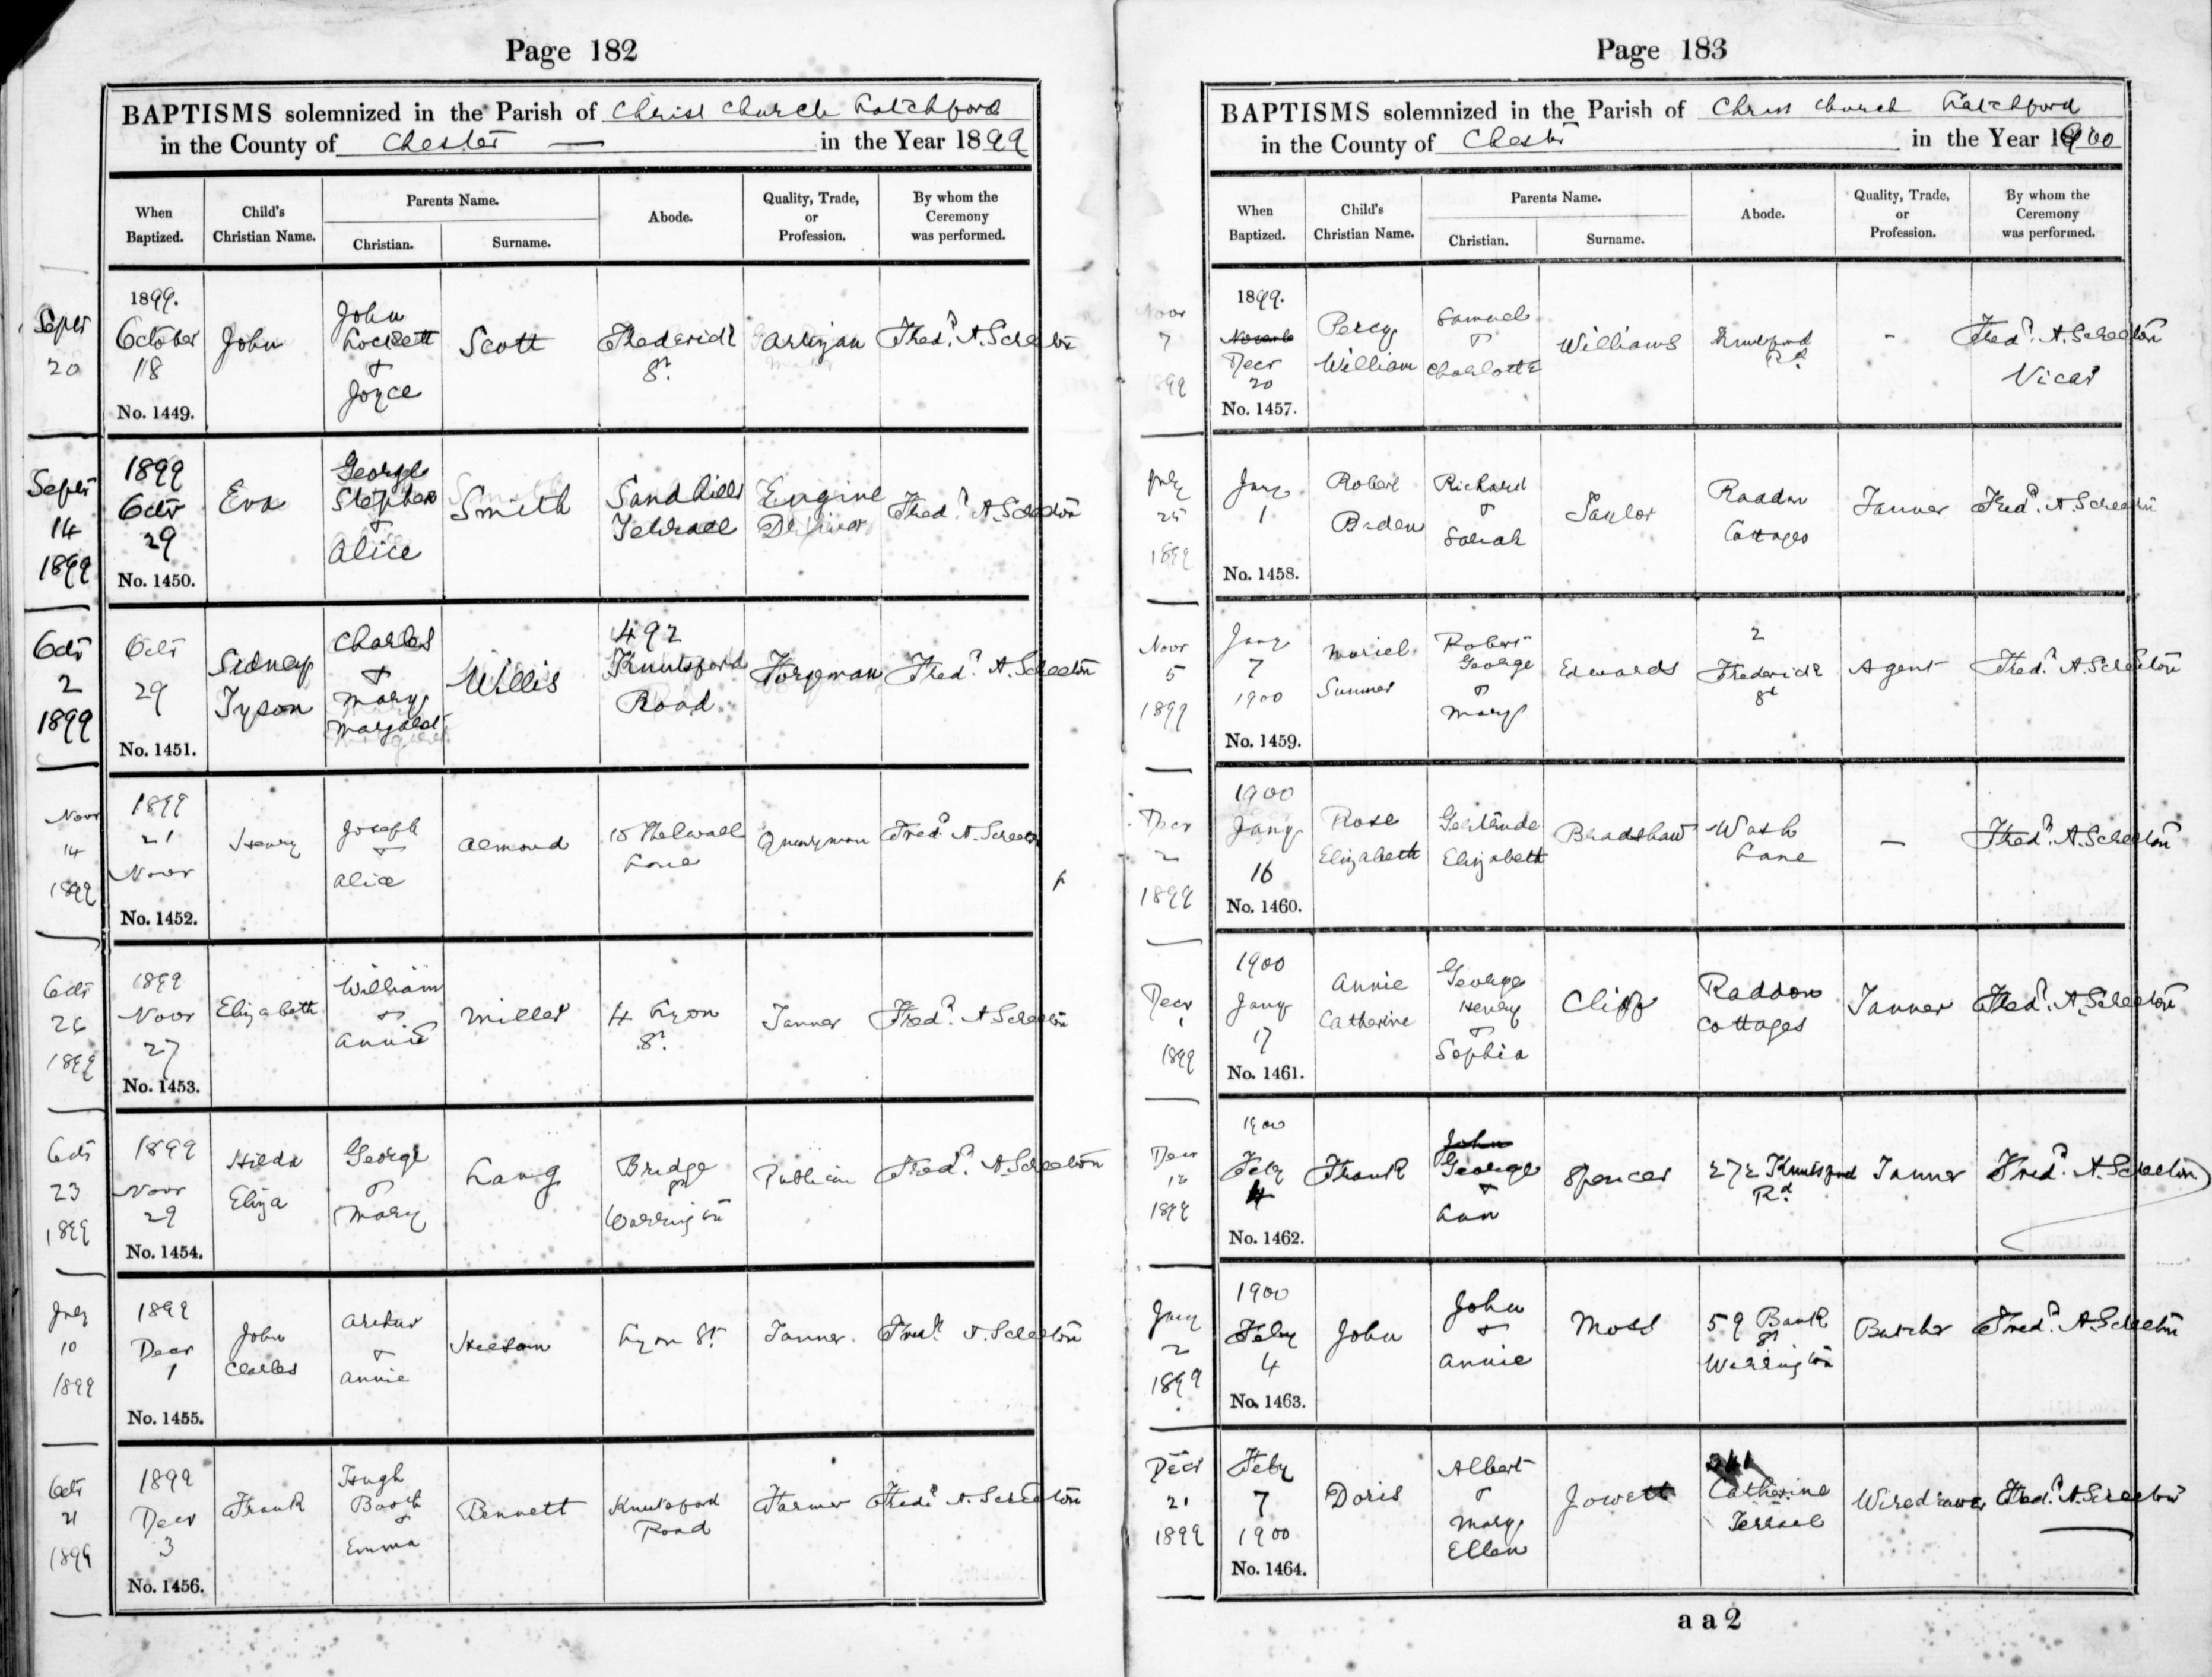 Page 182
BAPTISMS solemnized in the Parish of Christ Church Latchford
in the County of Chester — in the Year 1899
When Baptized. Child's Christian Name. Parents Name. Christian. Surname. Abode. Quality, Trade, or Profession. By whom the Ceremony was performed.
Septr 20
1899. October 18 No. 1449. John John Lockett & Joyce Scott Frederick St. Artizan Fredk. A. Screeton
Septr 14 1899
1899 Octr 29 No. 1450. Eva George Stephen & Alice Smith Sandhills Terrace Engine Driver Fredk. A. Screeton
Octr 2 1899
Octr 29 No. 1451. Sidney Tyson Charles & Mary Margaret Willis 492 Knutsford Road Forgeman Fredk. A. Screeton
Novr 14 1899
1899 21 Novr No. 1452. Henry Joseph & Alice Almond 18 Thelwall Lane Quarryman Fredk. A. Screeton
Octr 26 1899
1899 Novr 27 No. 1453. Elizabeth William & Annie Miller 4 Lyon St. Tanner Fredk. A. Screeton
Octr 23 1899
1899 Novr 29 No. 1454. Hilda Eliza George & Mary Lang Bridge St Warrington Publican Fredk. A. Screeton
July 10 1899
1899 Decr 1 No. 1455. John Charles Arthur & Annie Lyon St. Tanner. Fredk. A. Screeton
Octr 21 1899
1899 Decr 3 No. 1456. Frank Hugh Booth & Emma Bennett Knutsford Road Farmer Fredk. A. Screeton
Page 183
BAPTISMS solemnized in the Parish of Christ Church Latchford
in the County of Chester in the Year 1900
When Baptized. Child's Christian Name. Parents Name. Christian. Surname. Abode. Quality, Trade, or Profession. By whom the Ceremony was performed.
Novr 7 1899
1899. Decr 20 No. 1457. Percy William Samuel & Charlotte Williams Knutsford Rd. - Fredk. A. Screeton Vicar
July 25 1899
Jany 1 No. 1458. Robert Baden Richard & Sarah Taylor Raddon Cottages Tanner Fredk. A. Screeton
Novr 5 1899
Jany 7 1900 No. 1459. Muriel Sumner Robert George & Mary Edwards 2 Frederick St Agent Fredk. A. Screeton
Decr 2 1899
1900 Jany 16 No. 1460. Rose Elizabeth Gertrude Elizabeth Bradshaw Wash Lane - Fredk. A. Screeton
Decr 1 1899
1900 Jany 17 No. 1461. Annie Catherine George Henry & Sophia Cliff Raddon Cottages Tanner Fredk. A. Screeton
Decr 12 1899
1900 Feby 4 No. 1462. Frank John George & Ann Spencer 272 Knutsford Rd. Tanner Fredk. A. Screeton
Jany 2 1899
1900 Feby 4 No. 1463. John John & Annie Moss 59 Bank St Warrington Butcher Fredk. A. Screeton
Decr 21 1899
Feby 7 1900 No. 1464. Doris Albert & Mary Ellen Jowett Catherine Terrace Wiredrawer Fredk. A. Screeton
a a 2